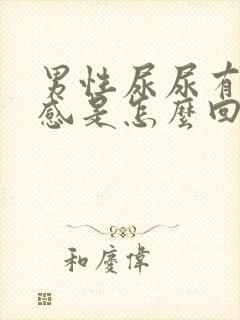 男性尿尿有
感是怎麼回
和慶偉